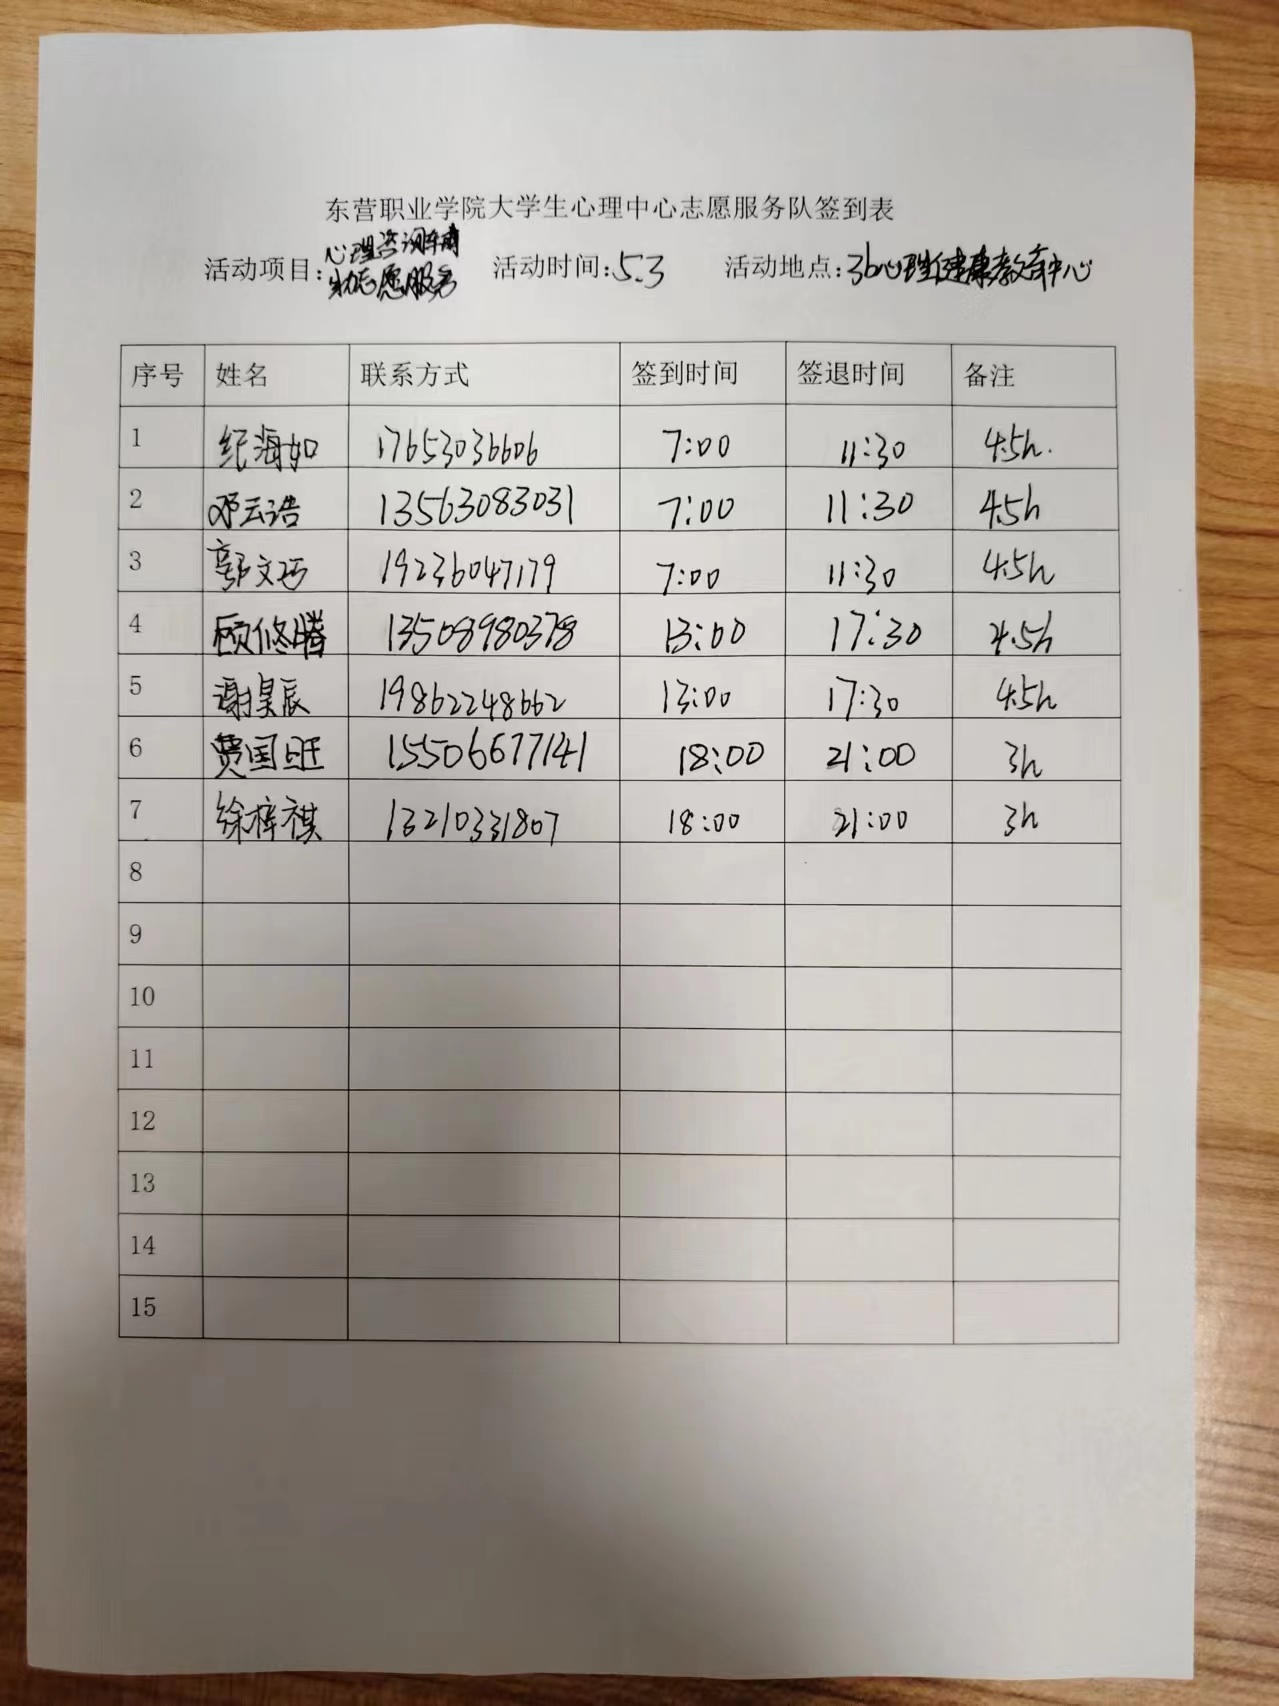 东营职业学院大学生心理中心志愿服务队签到表
活动项目:心理咨询 志愿服务 活动时间:5.3 活动地点:3b心理健康教育中心
序号 姓名 联系方式 签到时间 签退时间 备注
1 纪海如 17653036606 7:00 11:30 4.5h.
2 邓云浩 13563083031 7:00 11:30 4.5h
3 郭文巧 19236047179 7:00 11:30 4.5h
4 顾修腾 13508980378 13:00 17:30 4.5h
5 谢昊辰 19862248662 13:00 17:30 4.5h
6 费国旺 15506677141 18:00 21:00 3h
7 徐梓祺 13210331807 18:00 21:00 3h
8
9
10
11
12
13
14
15